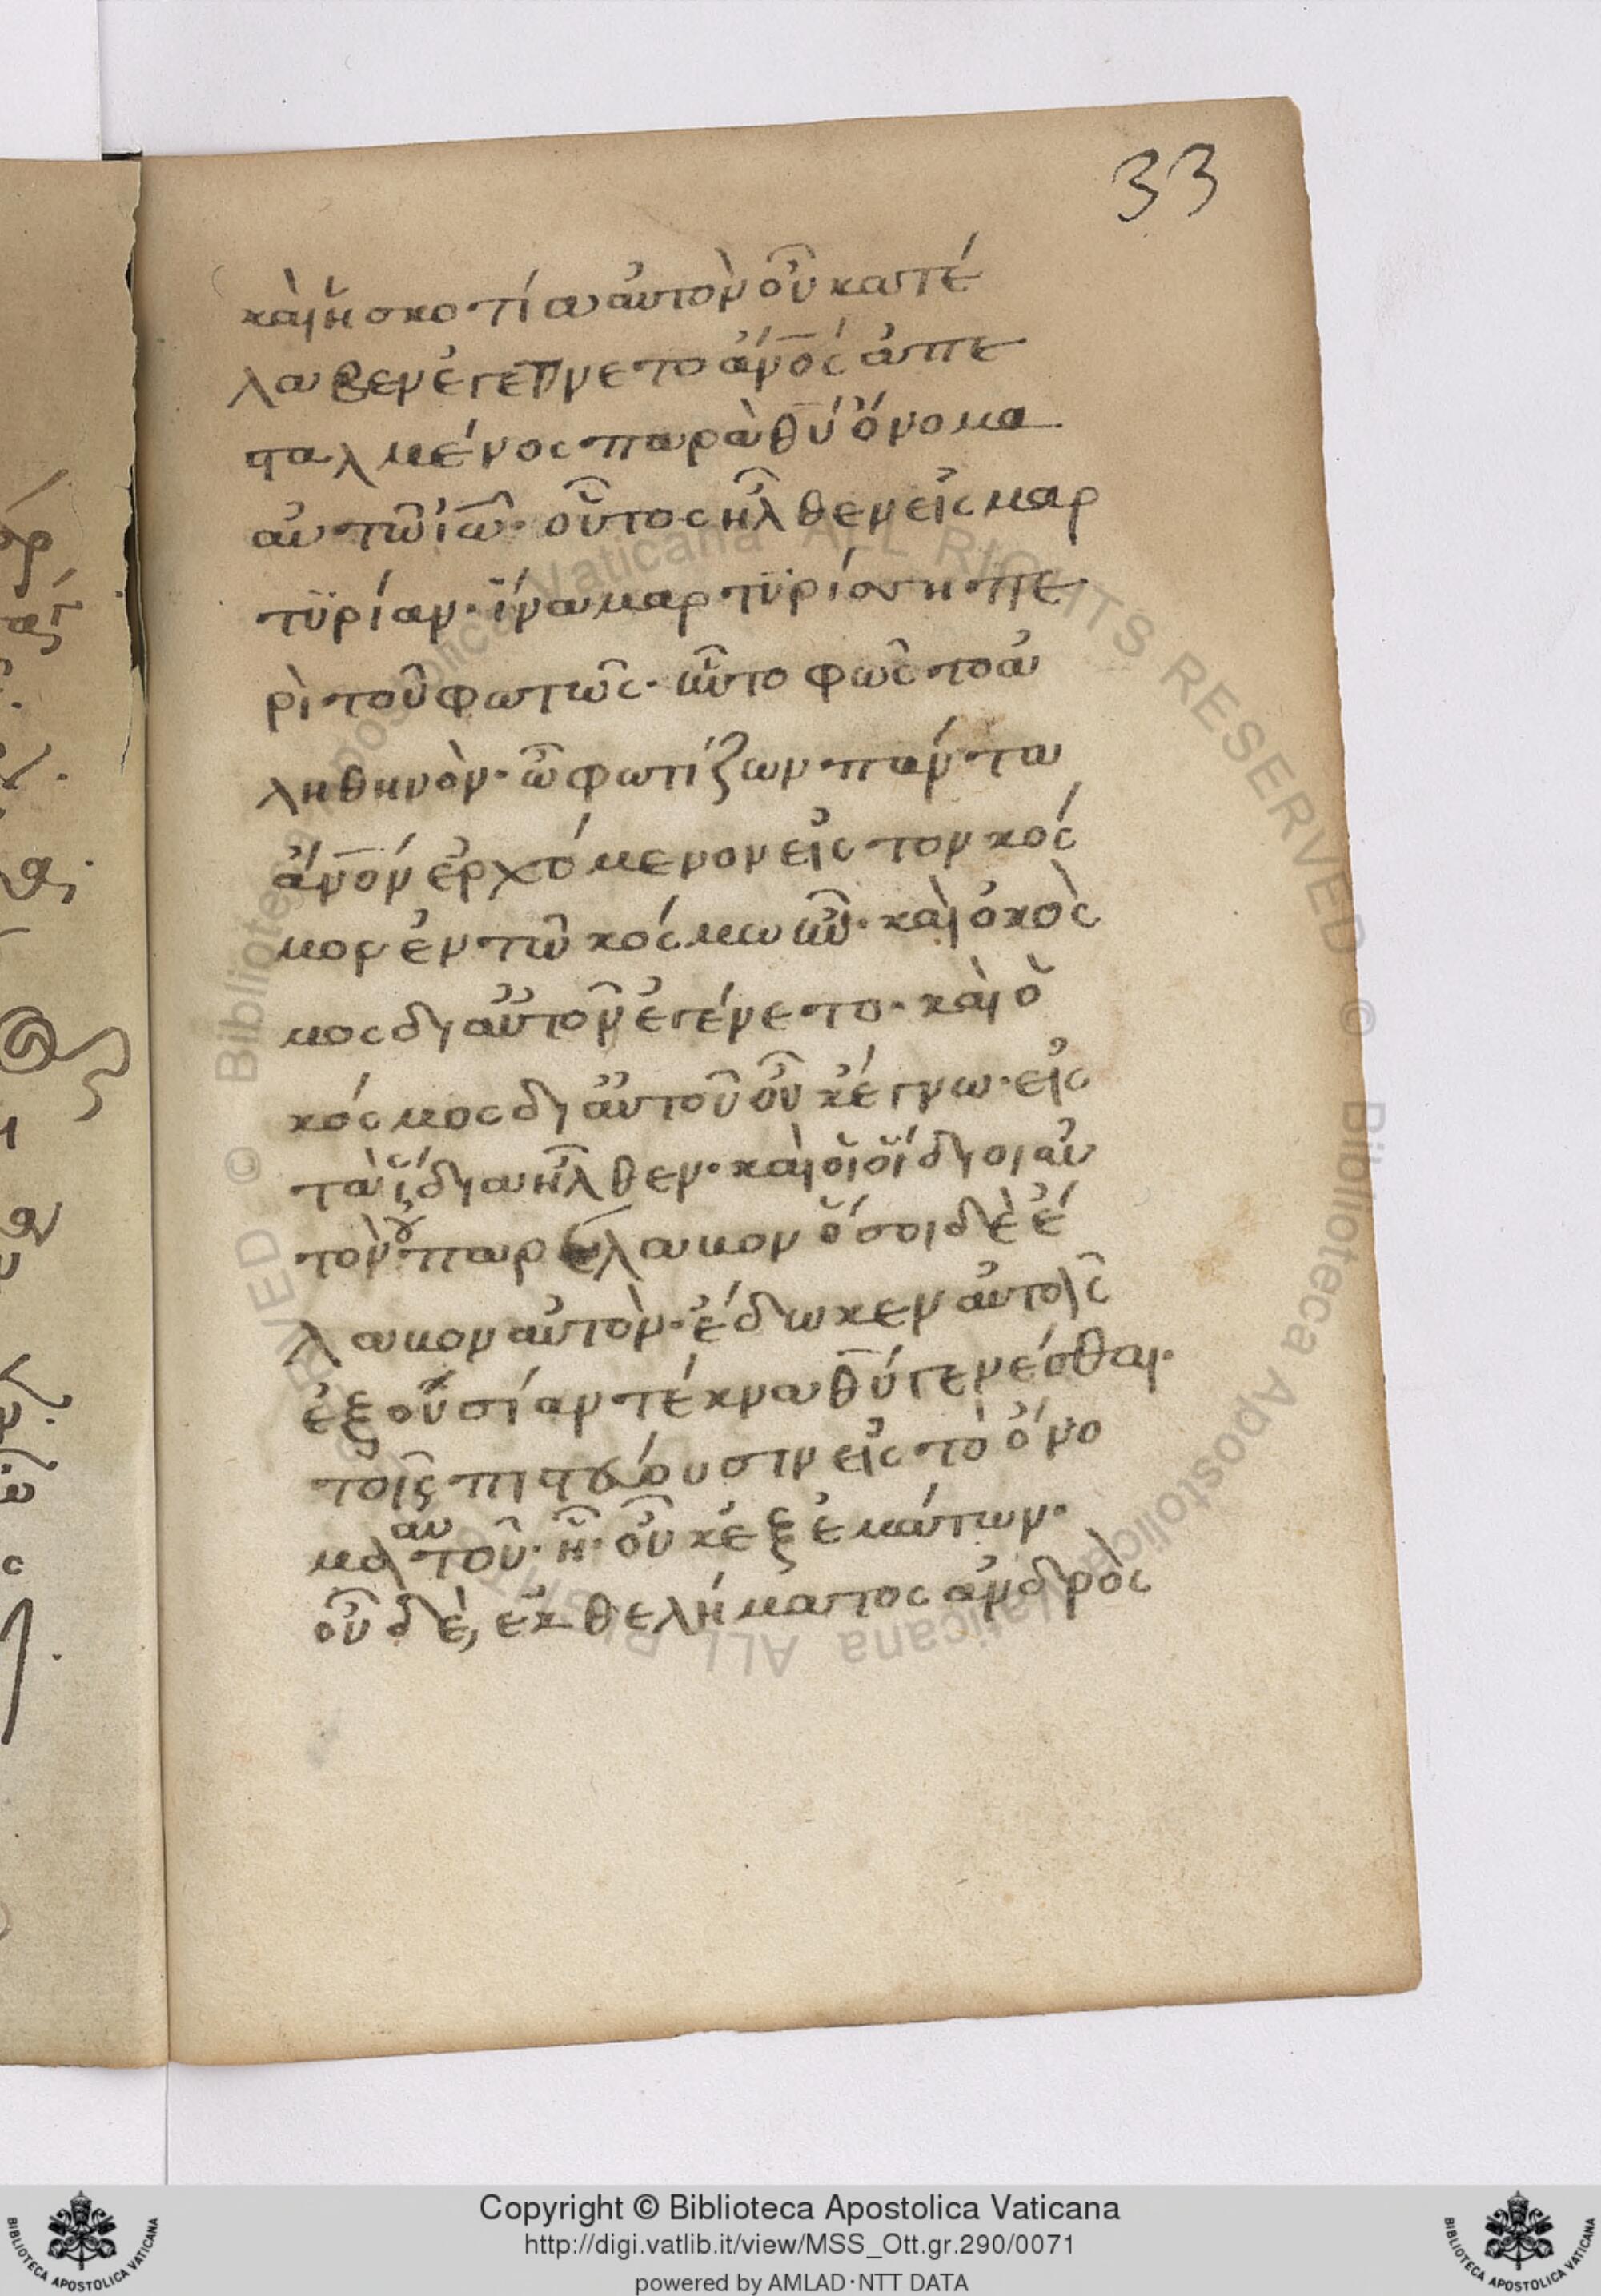 33
καὶ ἡ σκοτία αὐτὸν οὐ κατέ
λαβεν ἐγένετο ἄν̅ο̅ς ἀπε
σταλμένος παρὰ θ̅υ̅ ὄνομα
αὐτῶ ἰῶ̅· οὗτος ἦλθεν εἰς μαρ
τϋρίαν· ἵνα μαρτϋρίση πε
ρὶ τοῦ φωτῶς· ἦν το φῶς το ἀ
ληθηνὸν· ὧ φωτίζων πάντα
ἄν̅ο̅ν ἐρχόμενον εἰς τον κόσ
μον ἐν τῶ κόσμω ἦν· καὶ ὁ κὸσ
μος δι αὐτοῦ ἐγένετο· καὶ ὁ
κόσμος δι αὐτοῦ οὐκ έγνω· εἰς
τὰ ἵδια ἦλθεν· καὶ οἱ οἵδιοι αὐ
τὸν οὐ παρέλαμον ὅσοι δὲ ἔ
λαμον αὐτὸν· ἔδωκεν αὐτοῖς
ἐξουσίαν τέκνα θ̅υ̅ γενέσθαι·
τοῖς πιστεύουσιν εἰς τὸ ὄνο
μα αυτοῦ· ἢ· οὐκ ἐξ ἑμάτων·
οὐδὲ, ἐκ θελήματος ἀνδρὸς
Copyright © Biblioteca Apostolica Vaticana
http://digi.vatlib.it/view/MSS_Ott.gr.290/0071
powered by AMLAD·NTT DATA
BIBLIOTECA APOSTOLICA VATICANA
BIBLIOTECA APOSTOLICA VATICANA